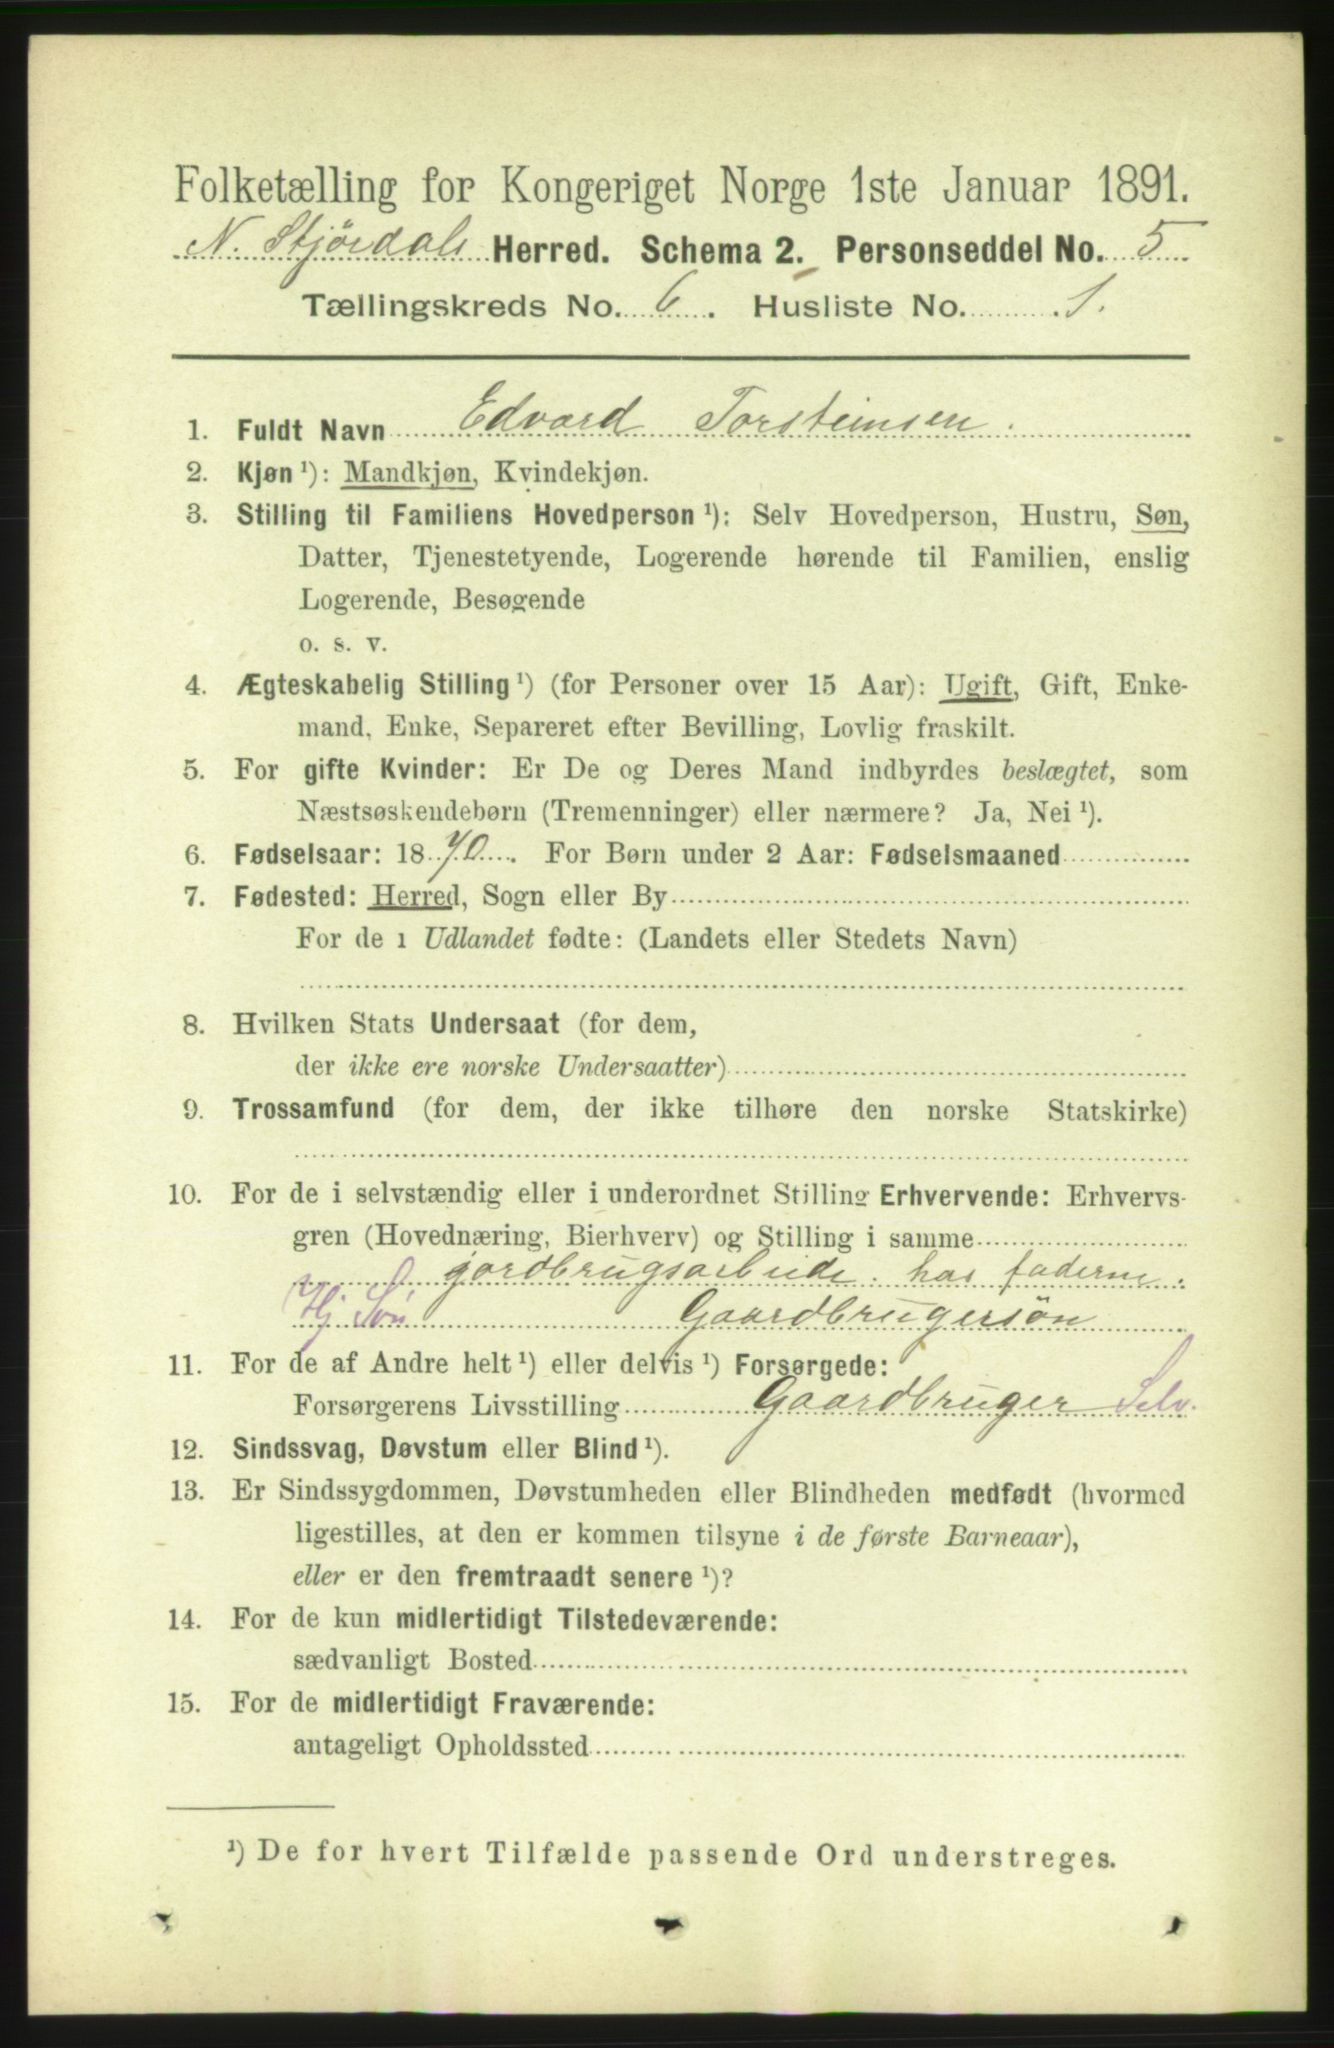 Folketælling for Kongeriget Norge 1ste Januar 1891.
N. Stjördals Herred. Schema 2. Personseddel No. 5
Tællingskreds No. 6. Husliste No. 1.
1. Fuldt Navn Edvard Torsteinsen.
2. Kjøn ¹): Mandkjøn, Kvindekjøn.
3. Stilling til Familiens Hovedperson ¹): Selv Hovedperson, Hustru, Søn,
Datter, Tjenestetyende, Logerende hørende til Familien, enslig
Logerende, Besøgende
o. s. v.
4. Ægteskabelig Stilling ¹) (for Personer over 15 Aar): Ugift, Gift, Enke-
mand, Enke, Separeret efter Bevilling, Lovlig fraskilt.
5. For gifte Kvinder: Er De og Deres Mand indbyrdes beslægtet, som
Næstsøskendebørn (Tremenninger) eller nærmere? Ja, Nei ¹).
6. Fødselsaar: 1870. For Børn under 2 Aar: Fødselsmaaned
7. Fødested: Herred, Sogn eller By
For de i Udlandet fødte: (Landets eller Stedets Navn)
8. Hvilken Stats Undersaat (for dem,
der ikke ere norske Undersaatter)
9. Trossamfund (for dem, der ikke tilhøre den norske Statskirke)
10. For de i selvstændig eller i underordnet Stilling Erhvervende: Erhvervs-
gren (Hovednæring, Bierhverv) og Stilling i samme
gordbrugsarbeide. hos faderne.
Hj Søn Gaardbrugersön
11. For de af Andre helt ¹) eller delvis ¹) Forsørgede:
Forsørgerens Livsstilling Gaardbruger Selv.
12. Sindssvag, Døvstum eller Blind ¹).
13. Er Sindssygdommen, Døvstumheden eller Blindheden medfødt (hvormed
ligestilles, at den er kommen tilsyne i de første Barneaar),
eller er den fremtraadt senere ¹)?
14. For de kun midlertidigt Tilstedeværende:
sædvanligt Bosted
15. For de midlertidigt Fraværende:
antageligt Opholdssted
¹) De for hvert Tilfælde passende Ord understreges.